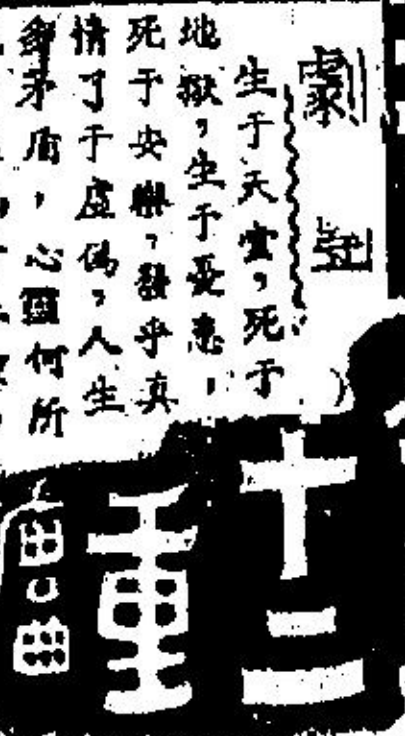 劇
生于天堂,死于
地獄,生于憂患,
死于安樂,發乎真
情了于虛偽,人生
矛盾,心靈何所
十二
重